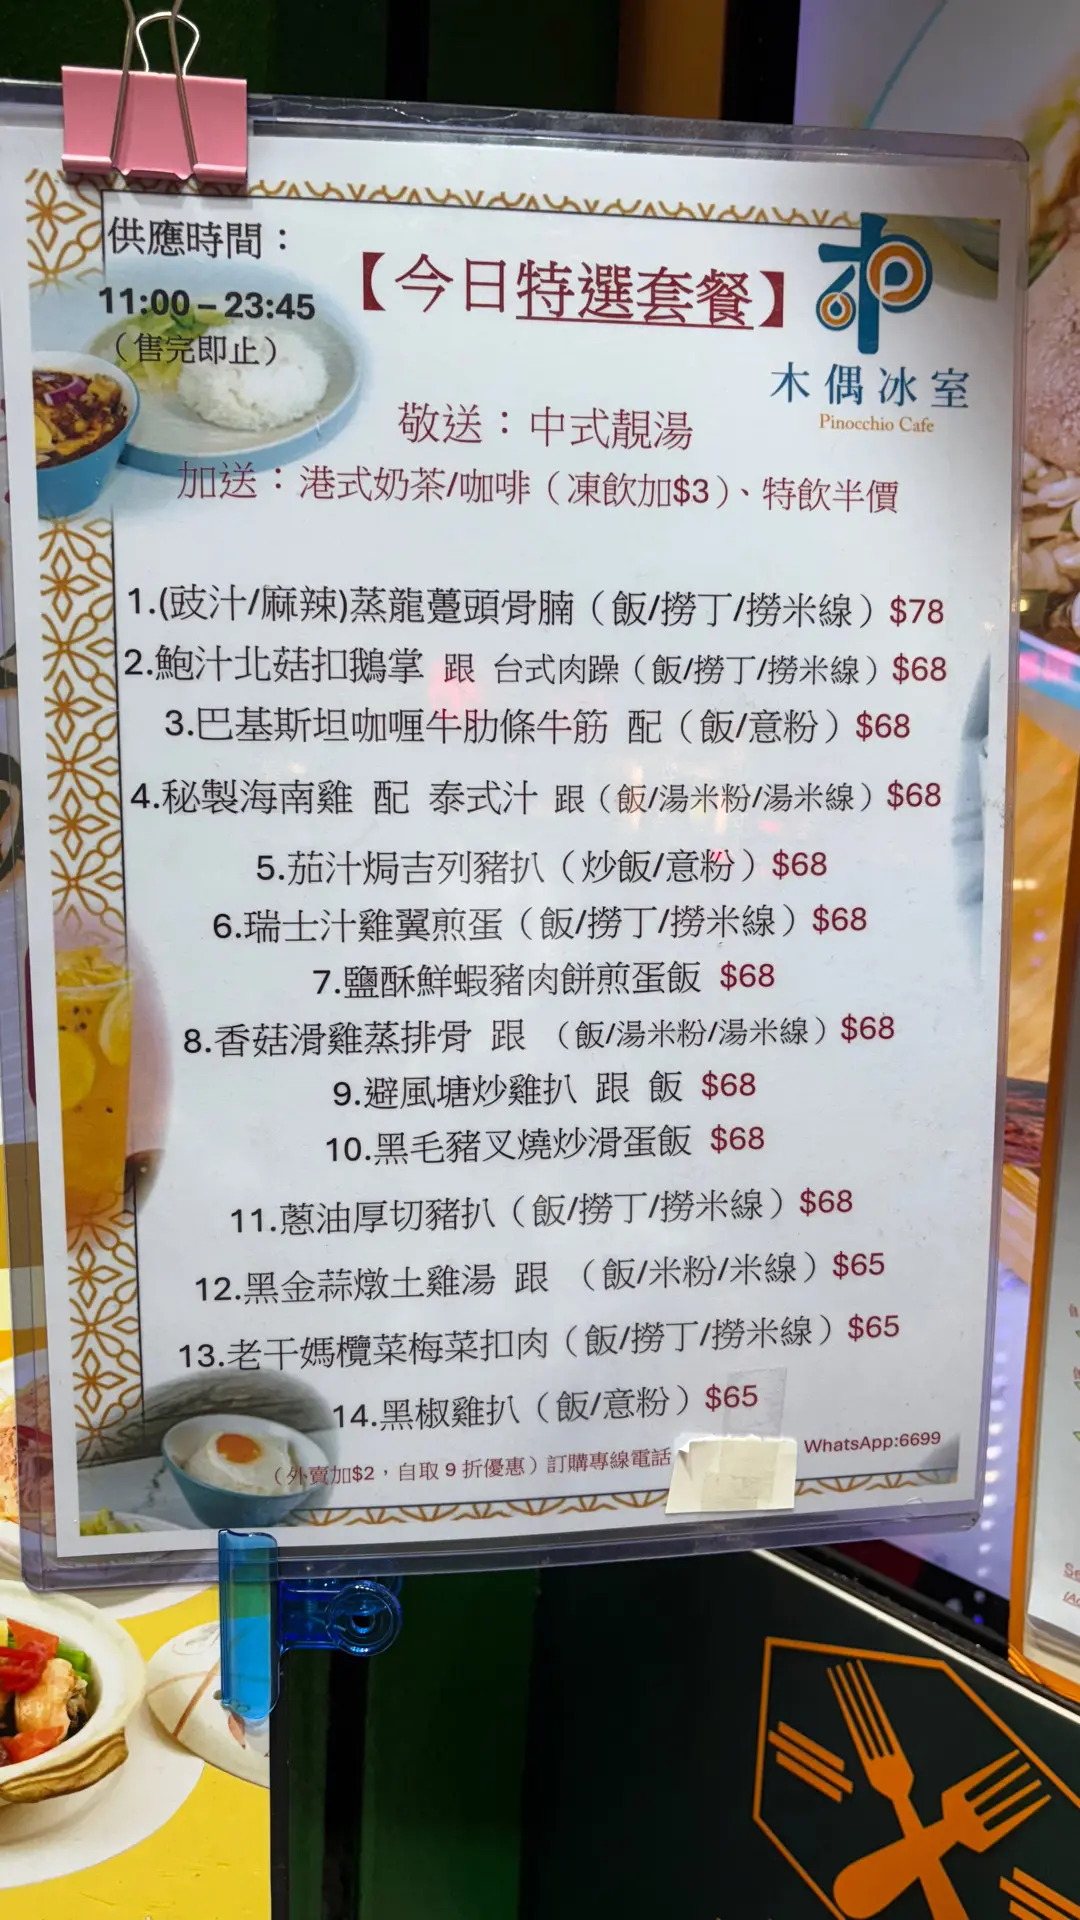 供應時間：
11:00 – 23:45
（售完即止）
【今日特選套餐】
木偶冰室
Pinocchio Cafe
敬送：中式靚湯
加送：港式奶茶/咖啡（凍飲加$3）、特飲半價
1.(豉汁/麻辣)蒸龍躉頭骨腩（飯/撈丁/撈米線）$78
2.鮑汁北菇扣鵝掌 跟 台式肉躁（飯/撈丁/撈米線）$68
3.巴基斯坦咖喱牛肋條牛筋 配（飯/意粉）$68
4.秘製海南雞 配 泰式汁 跟（飯/湯米粉/湯米線）$68
5.茄汁焗吉列豬扒（炒飯/意粉）$68
6.瑞士汁雞翼煎蛋（飯/撈丁/撈米線）$68
7.鹽酥鮮蝦豬肉餅煎蛋飯 $68
8.香菇滑雞蒸排骨 跟 （飯/湯米粉/湯米線）$68
9.避風塘炒雞扒 跟 飯 $68
10.黑毛豬叉燒炒滑蛋飯 $68
11.蔥油厚切豬扒（飯/撈丁/撈米線）$68
12.黑金蒜燉土雞湯 跟 （飯/米粉/米線）$65
13.老干媽欖菜梅菜扣肉（飯/撈丁/撈米線）$65
14.黑椒雞扒（飯/意粉）$65
（外賣加$2，自取 9 折優惠）訂購專線電話
WhatsApp:6699